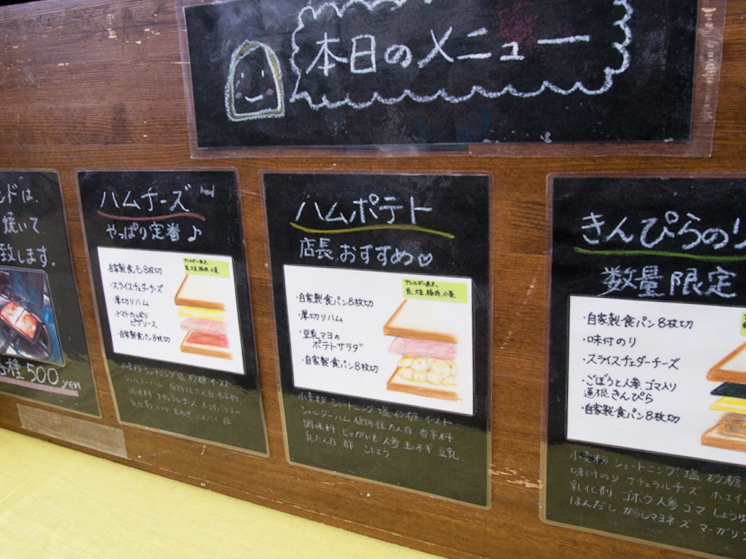 本日のメニュー
ドは、
焼いて
致します。
各種500yen
ハムチーズ
やっぱり定番♪
・自家製食パン8枚切
・スライスチェダーチーズ
・厚切りハム
・トマトたっぷり
ピザソース
・自家製食パン8枚切
ハムポテト
店長おすすめ♡
・自家製食パン8枚切
・厚切りハム
・豆乳マヨの
ポテトサラダ
・自家製食パン8枚切
小麦粉 ショートニング 塩 砂糖 イースト
ショルダーハム 植物性たん白 香辛料
調味料 じゃがいも 人参 玉ネギ 豆乳
乳たん白 酢 こしょう
きんぴらのり
数量限定
・自家製食パン8枚切
・味付のり
・スライスチェダーチーズ
・ごぼうと人参 ゴマ入り
蓮根きんぴら
・自家製食パン8枚切
小麦粉 ショートニング 塩 砂糖
味付けのり ナチュラルチーズ ホエイ
乳化剤 ゴボウ 人参 ゴマ しょうゆ
はんだし からしマヨネーズ マーガリン